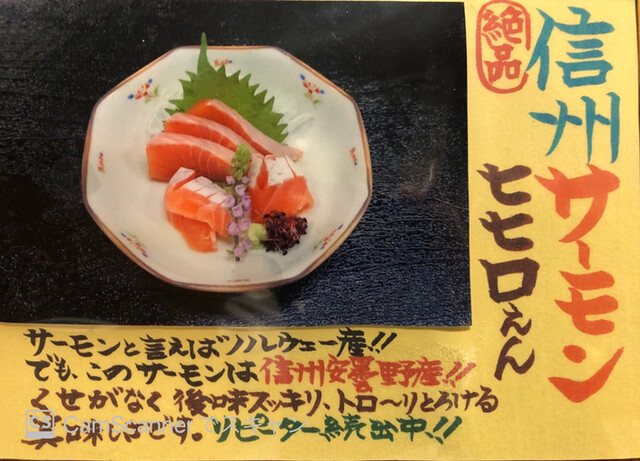 絶品
信州サーモン
七七〇えん
サーモンと言えばノルウェー産!!
でも、このサーモンは信州安曇野産!!
くせがなく後味スッキリ、トロ〜リとろける
美味しさです。リピーター続出中!!
CS CamScanner でスキャン